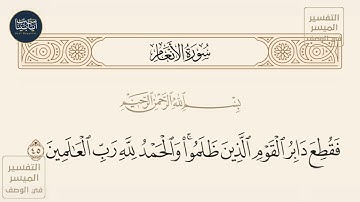 التفسير
الميسر
في الوصف
سُورَةُ الأَنْعَامِ
بِسْمِ اللَّهِ الرَّحْمَٰنِ الرَّحِيمِ
فَقُطِعَ دَابِرُ الْقَوْمِ الَّذِينَ ظَلَمُوا ۚ وَالْحَمْدُ لِلَّهِ رَبِّ الْعَالَمِينَ ٤٥
التفسير
الميسر
في الوصف